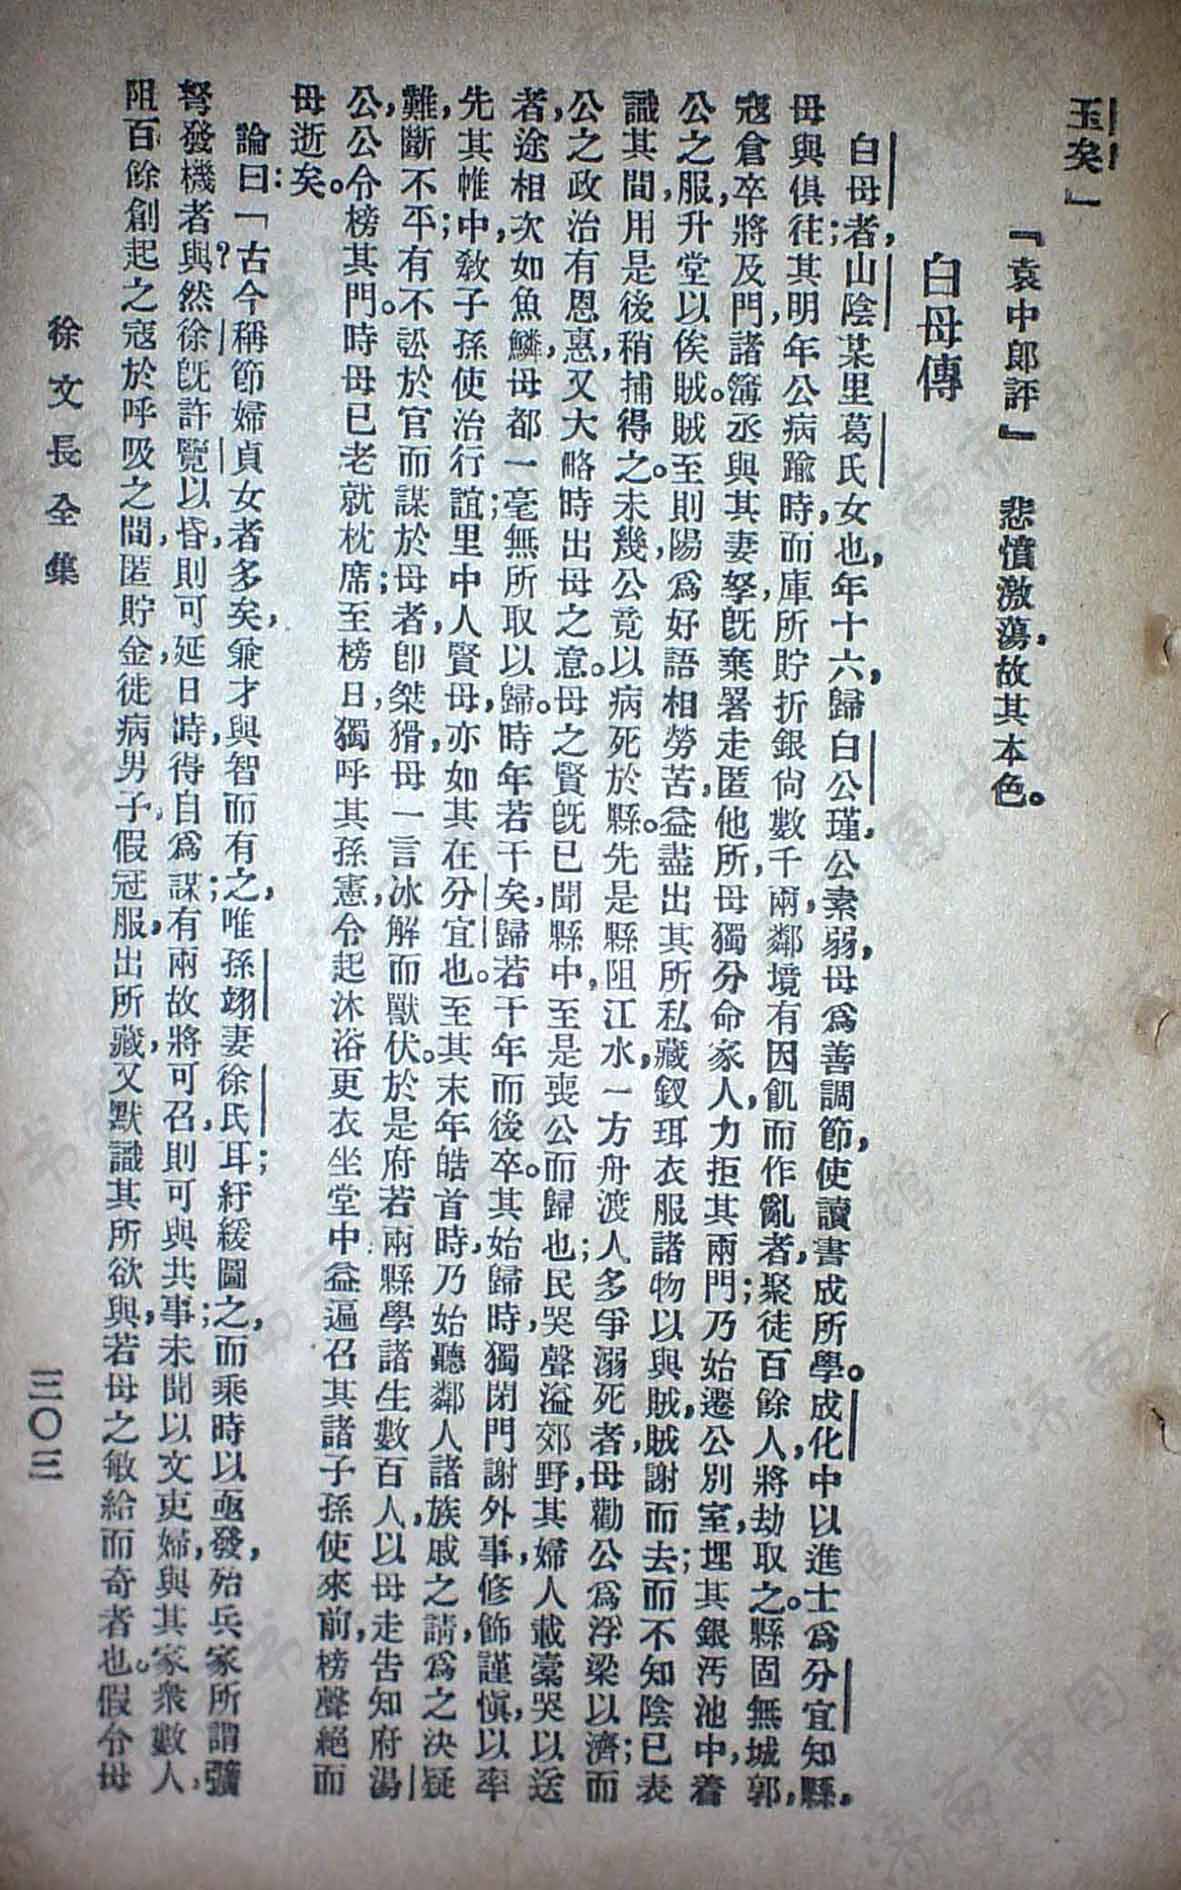 玉矣」
『袁中郎評』　悲憤激蕩，故其本色。
白母傳
白母者，山陰某里葛氏女也，年十六，歸白公瑾，公素弱，母爲善調節，使讀書成所學。成化中以進士爲分宜知縣，
母與俱往；其明年公病踰時，而庫所貯折銀尙數千兩，鄰境有因飢而作亂者，聚徒百餘人，將劫取之。縣固無城郭，
寇倉卒將及門，諸簿丞與其妻孥，旣棄署走匿他所，母獨分命家人，力拒其兩門；乃始遷公別室，埋其銀汚池中，着
公之服，升堂以俟賊。賊至則陽爲好語相勞苦，益盡出其所私藏釵珥衣服諸物以與賊，賊謝而去；而不知陰已表
識其間，用是後稍捕得之。未幾，公竟以病死於縣。先是縣阻江水，一方舟渡人，多爭溺死者，母勸公爲浮梁以濟；而
公之政治有恩惠，又大略時出母之意。母之賢旣已聞縣中，至是喪公而歸也；民哭聲溢郊野，其婦人載橐哭以送
者，途相次如魚鱗，母都一毫無所取以歸。時年若干矣，歸若干年而後卒。其始歸時，獨閉門謝外事，修飾謹愼，以率
先其帷中，敎子孫使治行誼；里中人賢母，亦如其在分宜也。至其末年皓首時，乃始聽鄰人諸族戚之請，爲之決疑
難，斷不平；有不訟於官而謀於母者，卽桀猾母一言，冰解而獸伏。於是府若兩縣學諸生數百人，以母走告知府湯
公，公令榜其門。時母已老就枕席；至榜日，獨呼其孫憲，令起沐浴更衣坐堂中，益遍召其諸子孫使來前，榜聲絕而
母逝矣。
論曰：「古今稱節婦貞女者多矣，兼才與智而有之，唯孫翊妻徐氏耳；紆緩圖之，而乘時以亟發，殆兵家所謂彍
弩發機者與？然徐旣許覽以昏，則可延日時，得自爲謀；有兩故將可召，則可與共事；未聞以文吏婦，與其家衆數人，
阻百餘創起之寇於呼吸之間，匿貯金，徒病男子，假冠服，出所藏，又默識其所欲與，若母之敏給而奇者也。假令母
徐文長全集
三〇三